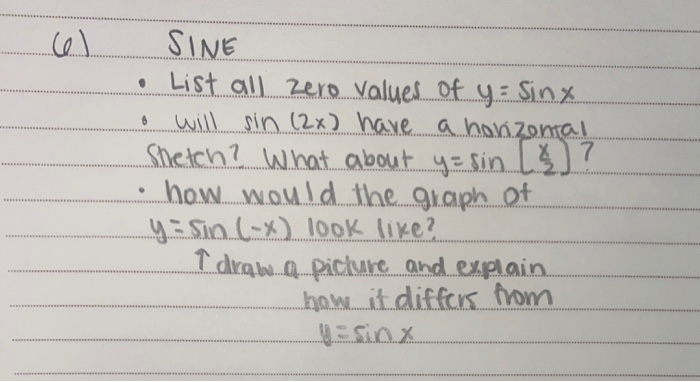 (6) SINE
• List all zero values of y = sin x
• will sin (2x) have a horizontal
Stretch? What about y = sin [x/2] ?
• how would the graph of
y = sin (-x) look like?
↑ draw a picture and explain
how it differs from
y = sin x